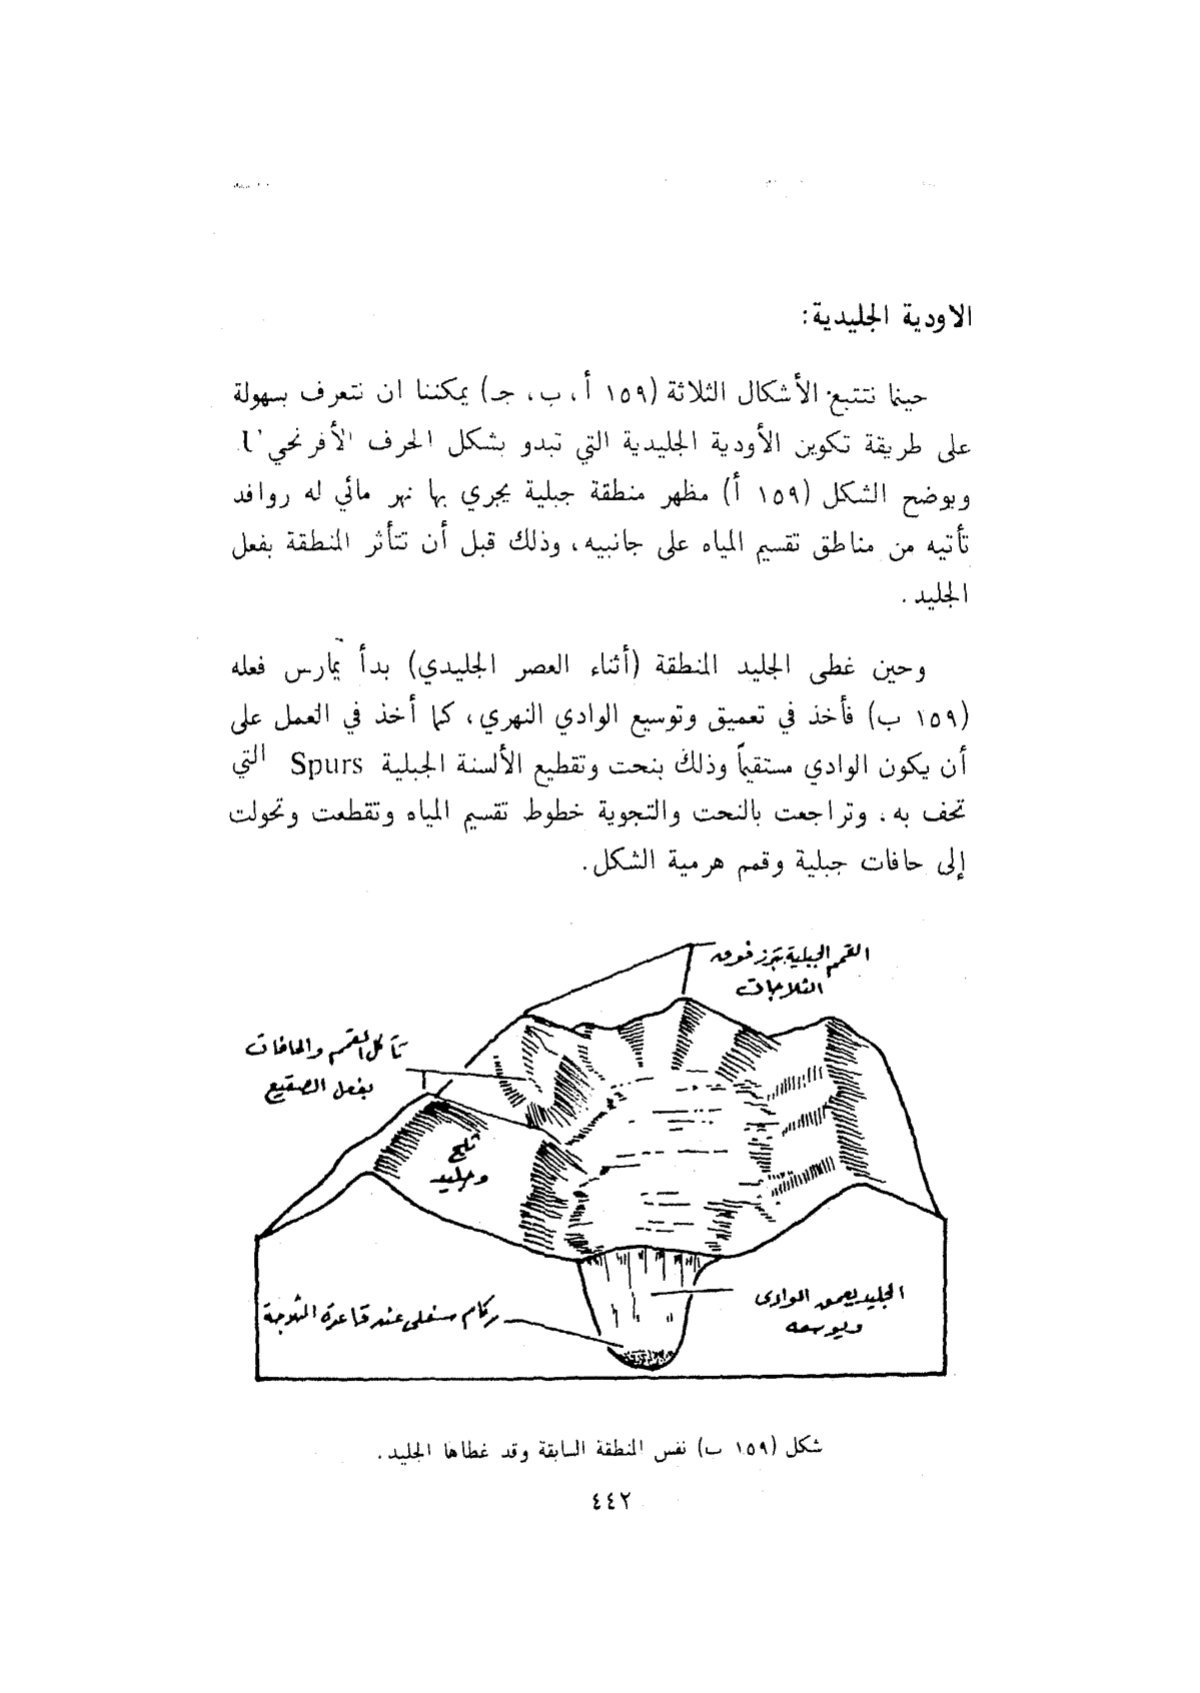 الاودية الجليدية:
حينما نتتبع الأشكال الثلاثة (١٥٩ أ، ب، جـ) يمكننا ان نتعرف بسهولة
على طريقة تكوين الأودية الجليدية التي تبدو بشكل الحرف الأفرنجي U
ويوضح الشكل (١٥٩ أ) مظهر منطقة جبلية يجري بها نهر مائي له روافد
تأتيه من مناطق تقسيم المياه على جانبيه، وذلك قبل أن تتأثر المنطقة بفعل
الجليد.
وحين غطى الجليد المنطقة (أثناء العصر الجليدي) بدأ يمارس فعله
(١٥٩ ب) فأخذ في تعميق وتوسيع الوادي النهري، كما أخذ في العمل على
أن يكون الوادي مستقيماً وذلك بنحت وتقطيع الألسنة الجبلية Spurs التي
تحف به، وتراجعت بالنحت والتجوية خطوط تقسيم المياه وتقطعت وتحولت
إلى حافات جبلية وقمم هرمية الشكل.
القمم الجبلية تبرز فوق
الثلاجات
تآكل القمم والحافات
بفعل الصقيع
ثلج
وجليد
الجليد يعمق الوادى
ويوسعه
ركام سفلى عند قاعدة الثلاجة
شكل (١٥٩ ب) نفس المنطقة السابقة وقد غطاها الجليد.
٤٤٢